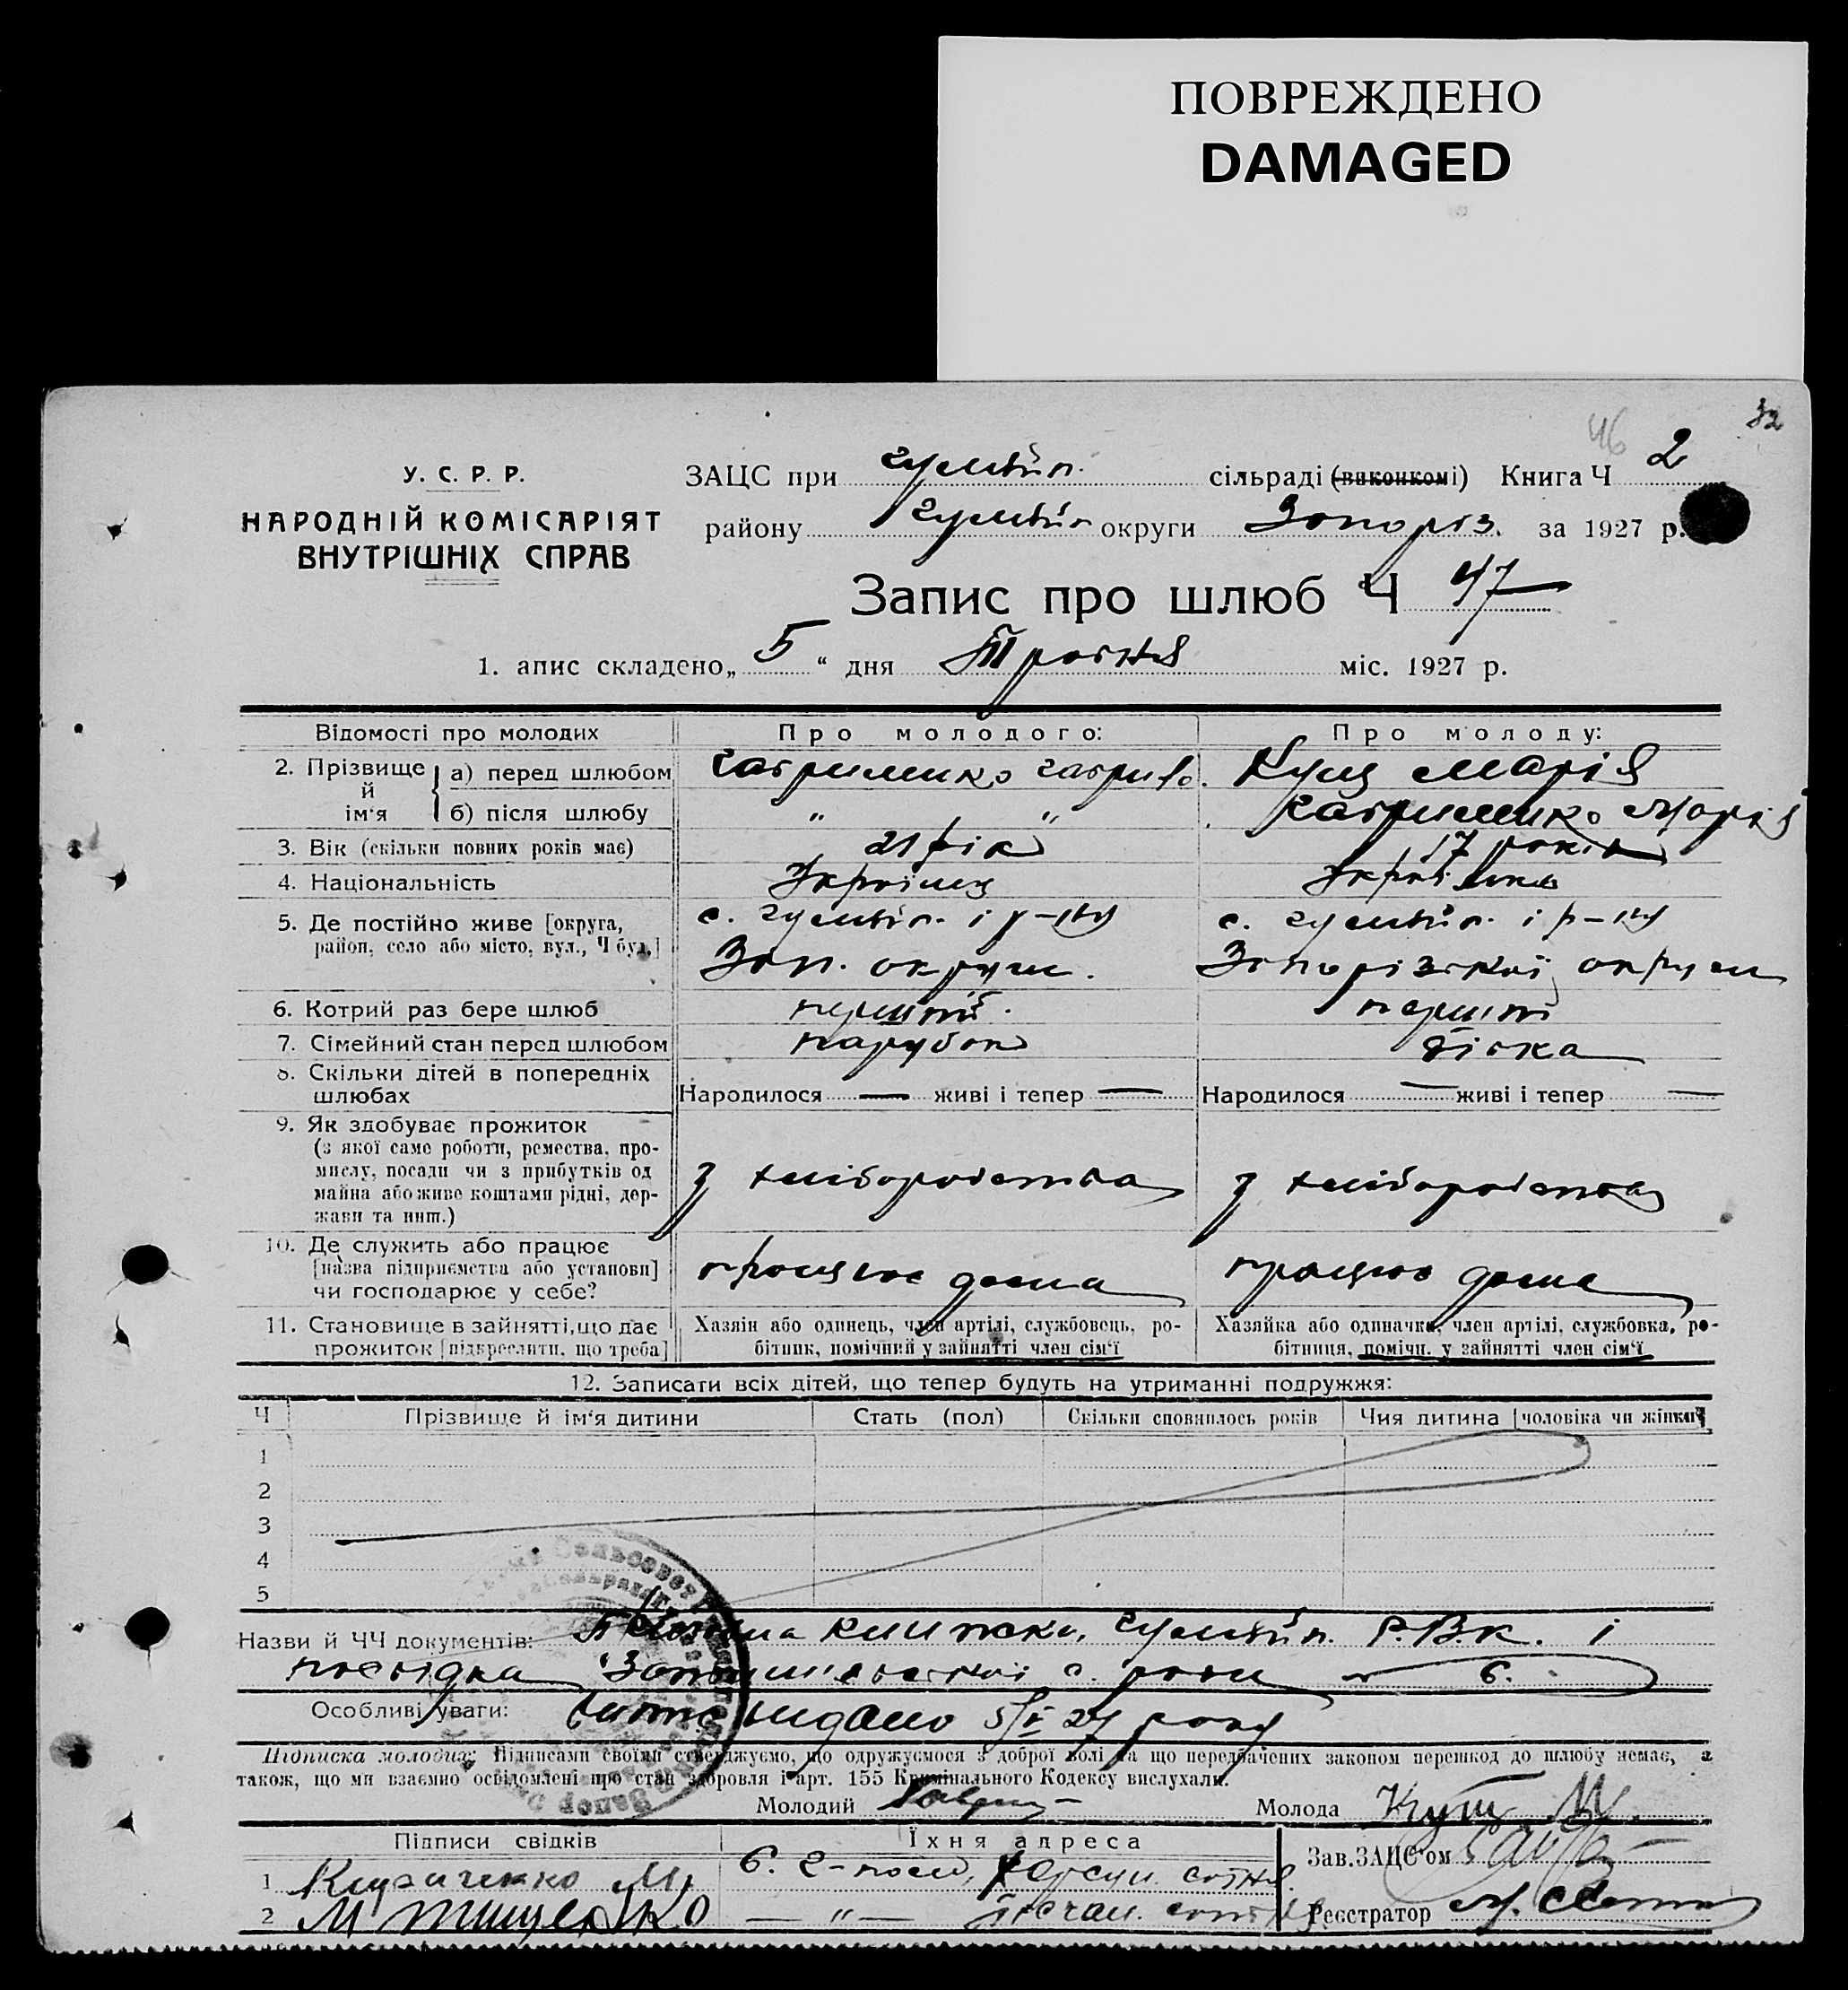 ПОВРЕЖДЕНО
DAMAGED
32
46
У. С. Р. Р.
НАРОДНІЙ КОМІСАРІЯТ
ВНУТРІШНІХ СПРАВ
ЗАЦС при Гуляйп. сільраді (виконкомі) Книга Ч 2
району Гуляйп округи Запоріз. за 1927 р.
Запис про шлюб Ч 47
1. апис складено „ 5 “ дня Травня міс. 1927 р.
Відомості про молодих Про молодого: Про молоду:
2. Прізвище й ім'я а) перед шлюбом Гавриленко Гаврило. Кущ Марія
б) після шлюбу " " Гавриленко Марія
3. Вік (скільки повних років має) 21 рік 17 років
4. Національність Українец Українка
5. Де постійно живе [округа, с. Гуляйп. і р-ну с. Гуляйп. і р-ну
район, село або місто, вул., Ч буд.] Зап. округи. Запорізької округи
6. Котрий раз бере шлюб перший. перший
7. Сімейний стан перед шлюбом парубок дівка
8. Скільки дітей в попередніх
шлюбах Народилося — живі і тепер — Народилося — живі і тепер —
9. Як здобуває прожиток
(з якої саме роботи, ремества, про-
мислу, посади чи з прибутків од
майна або живе коштами рідні, дер-
жави та инш.) з хліборобства з хліборобства
10. Де служить або працює
[назва підприємства або установи]
чи господарює у себе? працює дома працює дома
11. Становище в зайнятті, що дає Хазяін або одинець, член артілі, службовець, ро- Хазяйка або одиначка, член артілі, службовка, ро-
прожиток [підкреслити, що треба] бітник, помічний у зайнятті член сім'ї бітниця, помічн. у зайнятті член сім'ї
12. Записати всіх дітей, що тепер будуть на утриманні подружжя:
Ч Прізвище й ім'я дитини Стать (пол) Скільки сповнилось років Чия дитина [чоловіка чи жінки]
1
2
3
4
5
Назви й ЧЧ документів: книжка, Гуляйп. Р.В.К. і
посвідка с. ради 6.
Особливі уваги: видано 5/V 27 року
Підписка молодих: Підписами своїми стверджуємо, що одружуємося з доброї волі та що передбачених законом перешкод до шлюбу немає, а
також, що ми взаємно освідомлені про стан здоровля і арт. 155 Кримінального Кодексу вислухали.
Молодий Молода Кущ М.
Підписи свідків Їхня адреса Зав. ЗАЦС'ом
1 М. с. Г-поле, сотня.
2 М Тищенко — " — сотня Реєстратор